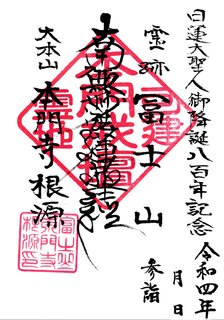 日蓮大聖人御降誕八百年記念
令和四年 月 日
参詣
霊跡 富士山
南無妙法蓮華経
大本山 本門寺根源
富士山
本門寺
根源印